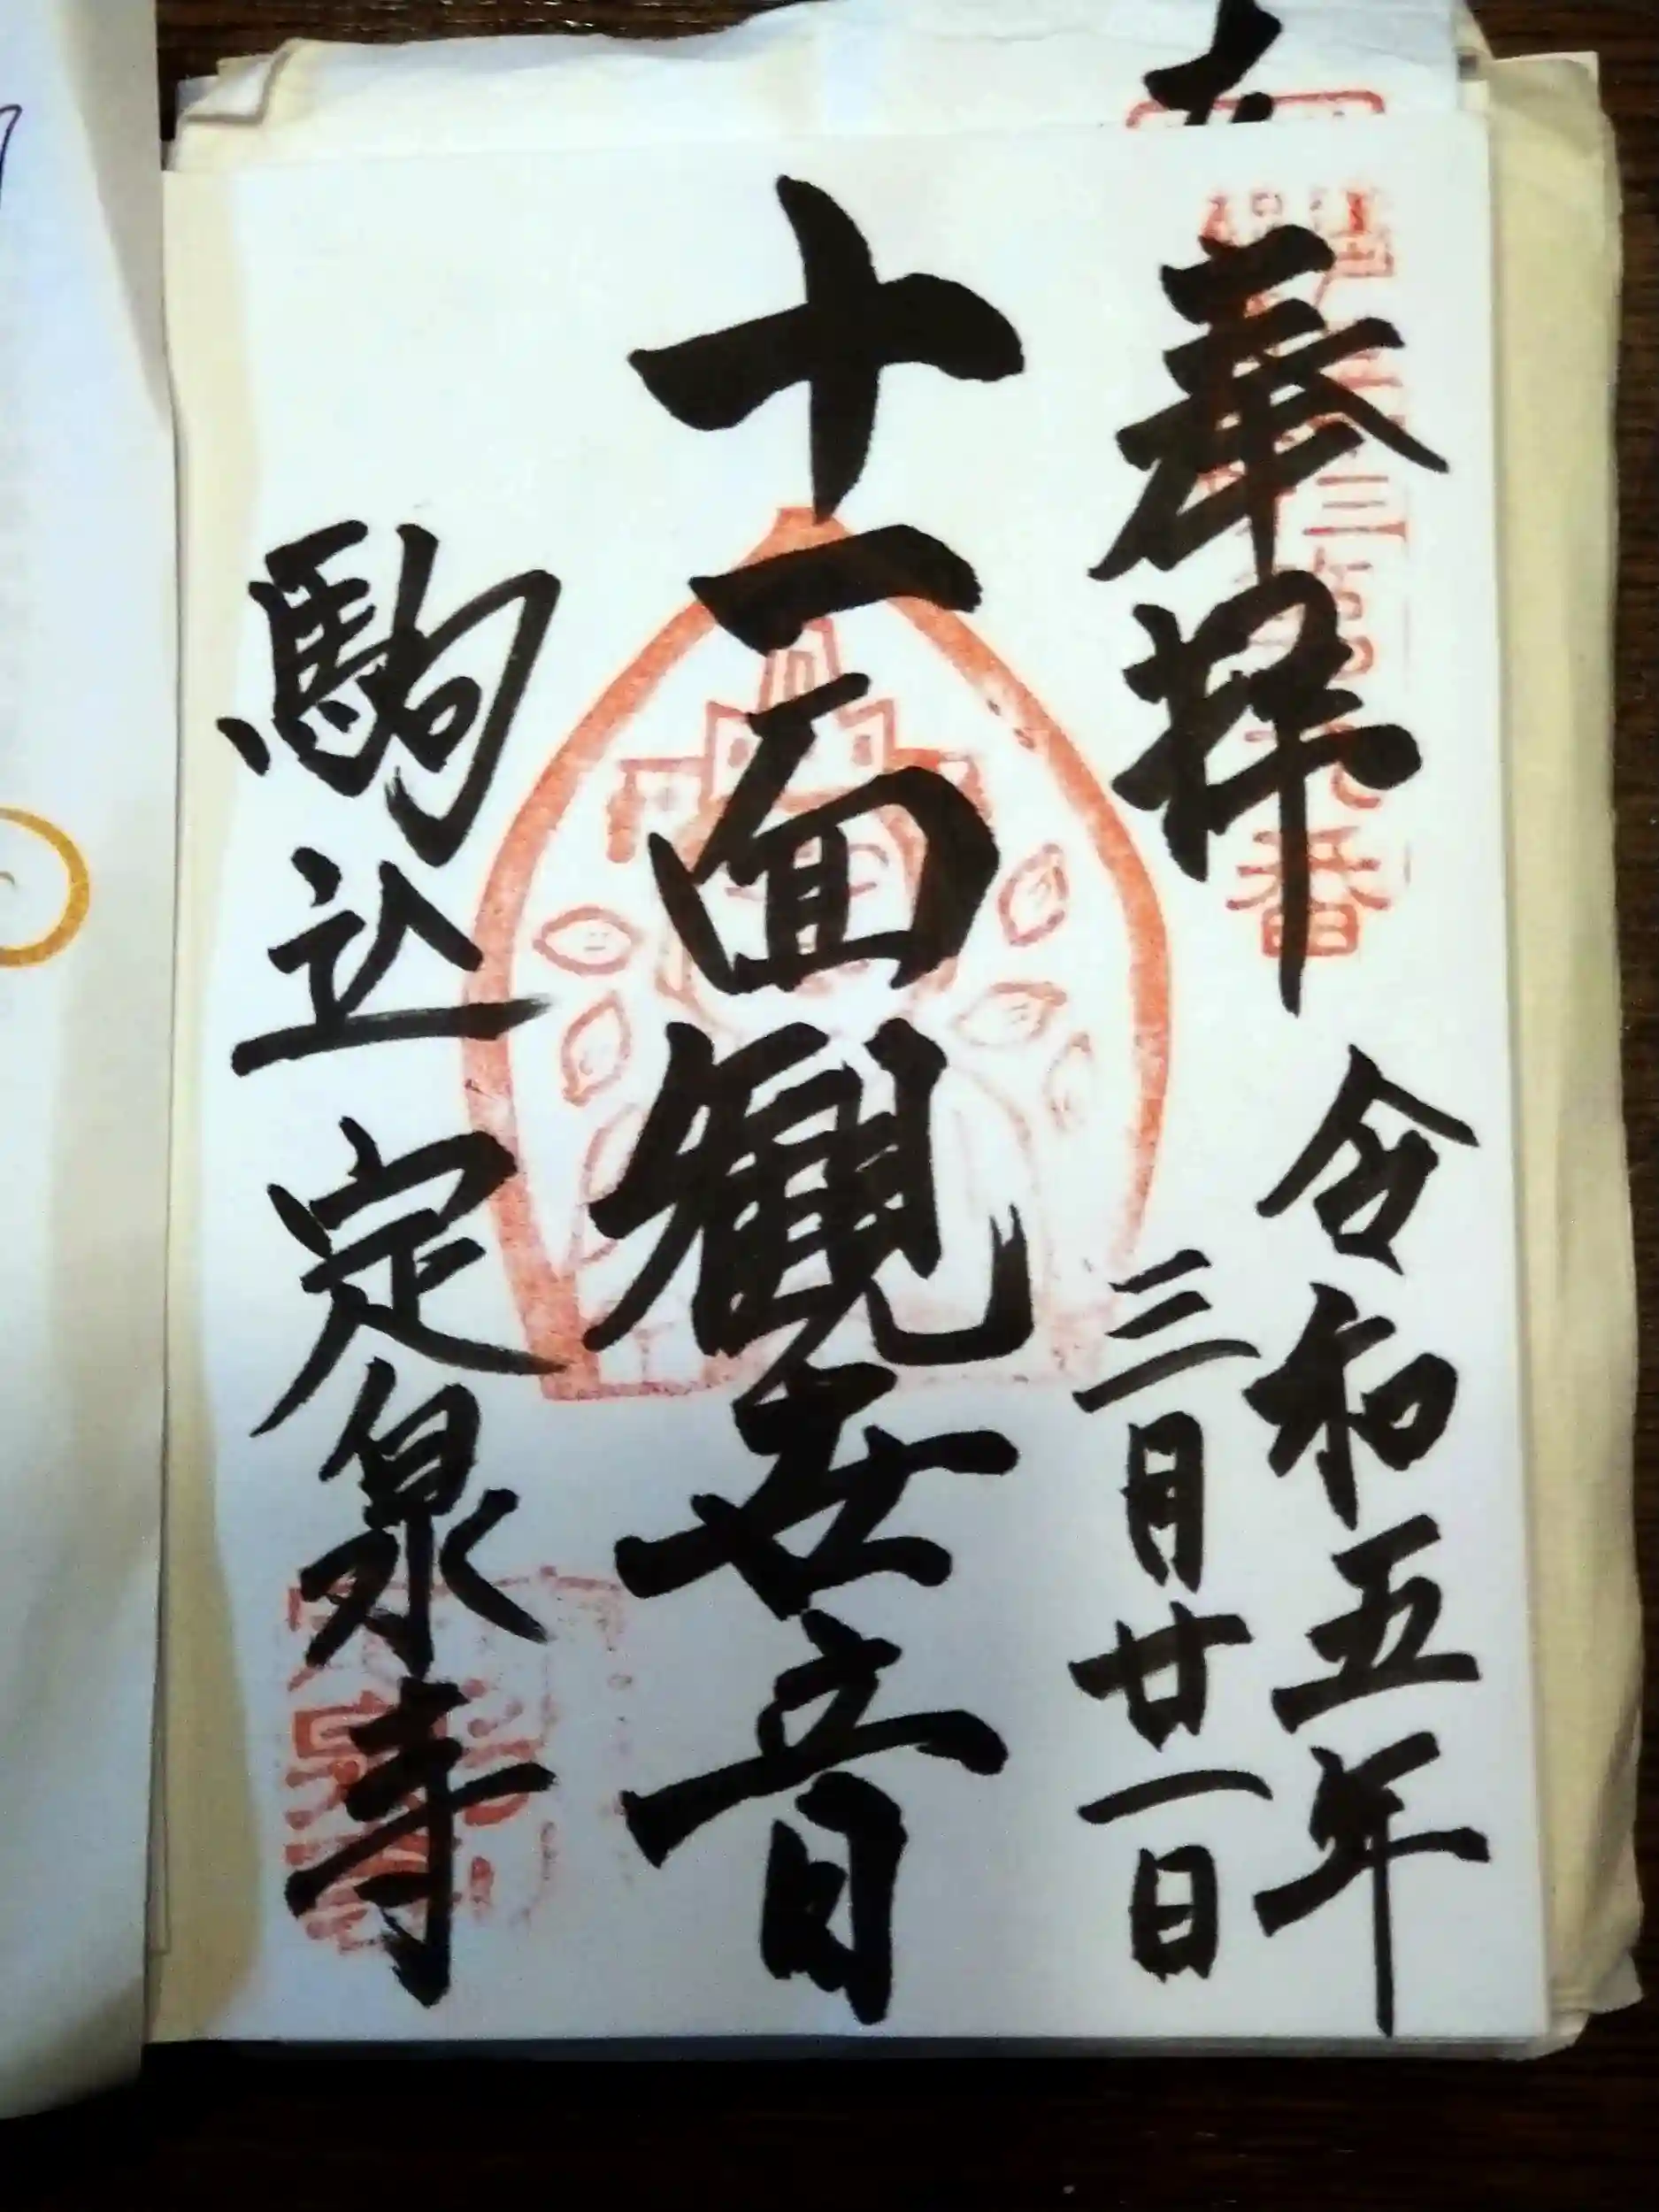 奉拝
令和五年
三月廿一日
十一面観世音
駒込定泉寺